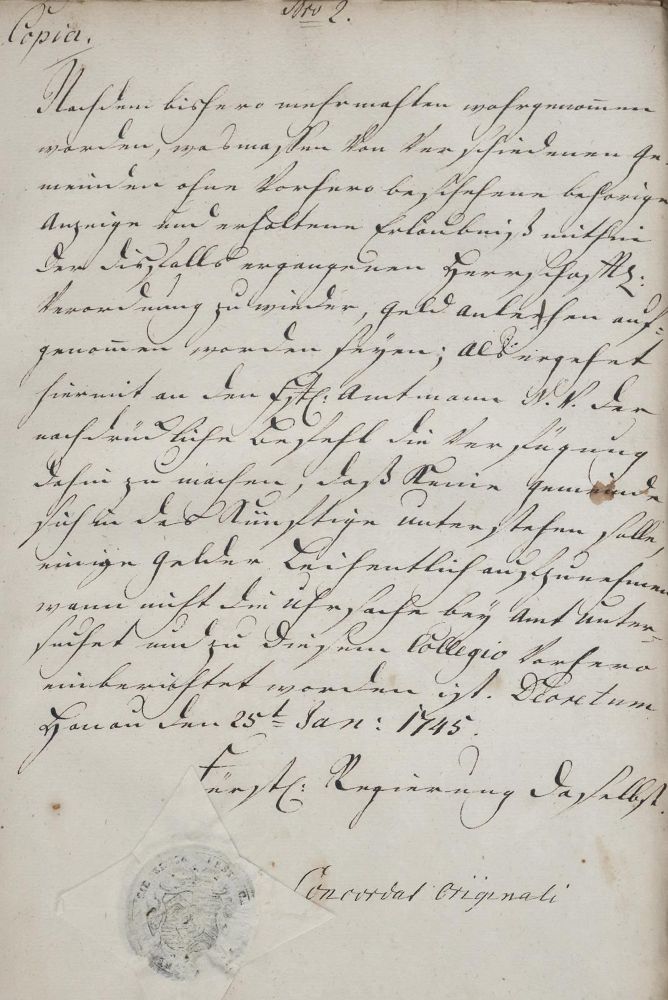 Nro 2.
Copia.
Nachdem bishero mehrmahlen wahrgenommen
worden, was massen von verschiedenen Ge-
meinden ohne vorhero beschehene behörige
Anzeige und erhaltene Erlaubniß mithin
der disfalls ergangenen Herrschafftl:
Verordnung zu wieder, Geld anleihen auf-
genommen worden seyen; Als ergehet
hiermit an den Fstl: Amtmann N. N. der
nachdrückliche Befehl die Verfügung
dahin zu machen, daß keine Gemeinde
sich in das Künfftige unterstehen solle,
einige Gelder Leihentlich aufzunehmen
wann nicht die Uhrsache bey Amt unter-
suchet und zu diesem Collegio vorhero
einberichtet worden ist. Decretum
Hanau den 25t Jan: 1745.
Fürstl: Regierung daselbst.
Concordat originali